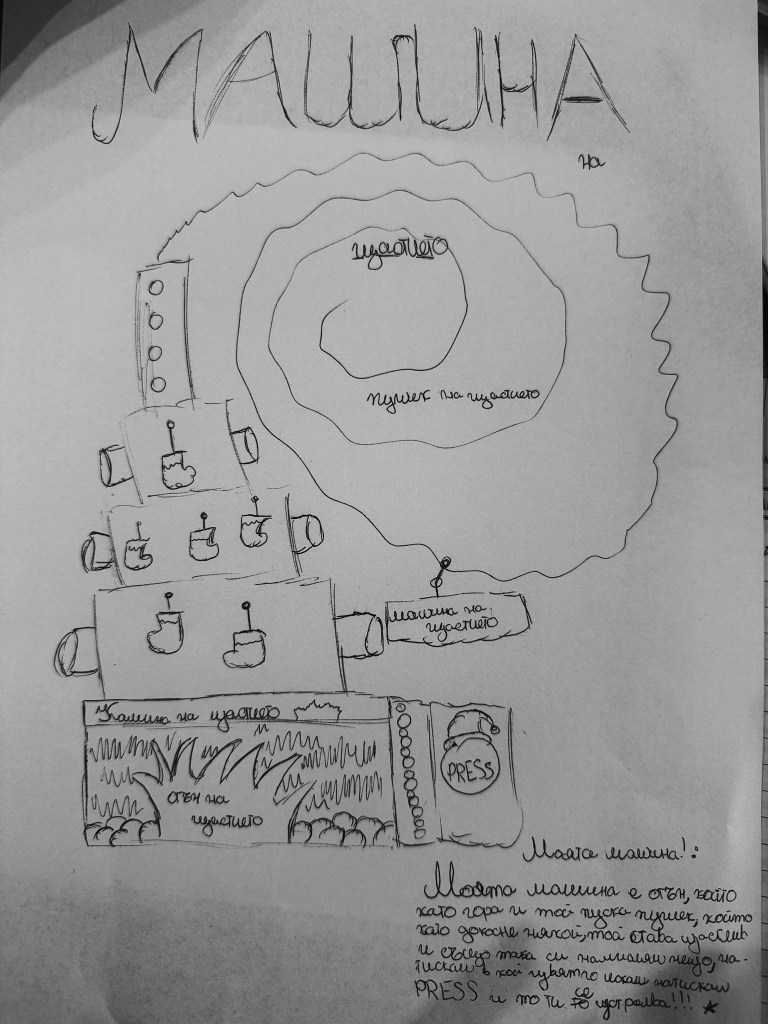 МАШИНА
на
щастието
пушек на щастието
машина на
щастието
Камина на щастието
PRESS
огън на
щастието
Моята машина!:
Моята машина е огън, който
като гори и той пуска пушек, който
като докосне някой, той става щастлив
и също така си намислям нещо, на-
тискам в кой цвят го искам натискам
PRESS и то ти се изстрелва!!!